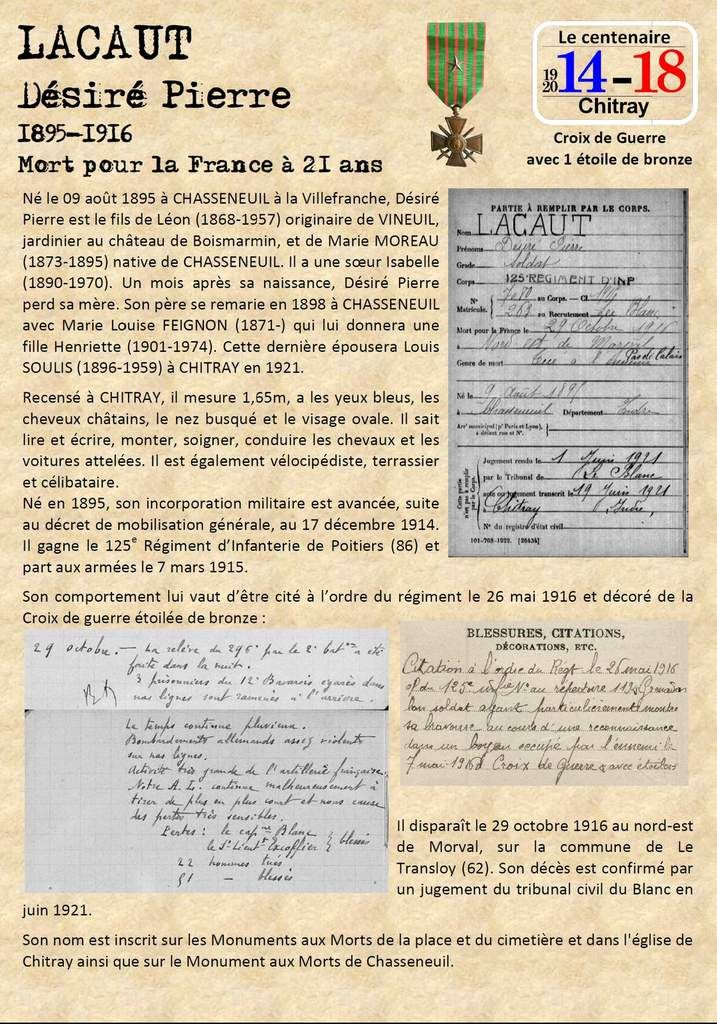 LACAUT
Désiré Pierre
1895-1916
Mort pour la France à 21 ans
Le centenaire
1920 14-18
Chitray
Croix de Guerre
avec 1 étoile de bronze
Né le 09 août 1895 à CHASSENEUIL à la Villefranche, Désiré
Pierre est le fils de Léon (1868-1957) originaire de VINEUIL,
jardinier au château de Boismarmin, et de Marie MOREAU
(1873-1895) native de CHASSENEUIL. Il a une sœur Isabelle
(1890-1970). Un mois après sa naissance, Désiré Pierre
perd sa mère. Son père se remarie en 1898 à CHASSENEUIL
avec Marie Louise FEIGNON (1871-) qui lui donnera une
fille Henriette (1901-1974). Cette dernière épousera Louis
SOULIS (1896-1959) à CHITRAY en 1921.
Recensé à CHITRAY, il mesure 1,65m, a les yeux bleus, les
cheveux châtains, le nez busqué et le visage ovale. Il sait
lire et écrire, monter, soigner, conduire les chevaux et les
voitures attelées. Il est également vélocipédiste, terrassier
et célibataire.
Né en 1895, son incorporation militaire est avancée, suite
au décret de mobilisation générale, au 17 décembre 1914.
Il gagne le 125e Régiment d'Infanterie de Poitiers (86) et
part aux armées le 7 mars 1915.
PARTIE À REMPLIR PAR LE CORPS.
Nom LACAUT
Prénoms Désiré Pierre
Grade Soldat
Corps 125e REGIMENT D'INF
N° au Corps. — Cl.
Matricule. 263 au Recrutement Le Blanc
Mort pour la France le 29 Octobre 1916
à Nord est de Morval
Pas de Calais
Genre de mort Tué à l'ennemi
Né le 9 Août 1895
à Chasseneuil Département Indre
Arr' municipal (p' Paris et Lyon),
à défaut rue et N°.
Cette partie n'est pas à remplir par le Corps.
Jugement rendu le 1 Juin 1921
par le Tribunal de Le Blanc
acte ou jugement transcrit le 19 Juin 1921
à Chitray Indre
N° du registre d'état civil
101-708-1922. [26434]
Son comportement lui vaut d'être cité à l'ordre du régiment le 26 mai 1916 et décoré de la
Croix de guerre étoilée de bronze :
29 octobre. — La relève du 296e par le 2e Baton a été
faite dans la nuit.
3 prisonniers du 12e Bavarois égarés dans
nos lignes sont ramenés à l'arrière.
Le temps continue pluvieux.
Bombardements allemands assez violents
sur nos lignes.
Activité très grande de l'artillerie française.
Notre A.L. continue malheureusement à
tirer de plus en plus court et nous cause
des pertes très sensibles.
Pertes : le capne Blanc
le St Lieutt Excoffier } blessés
22 hommes tués
51 — blessés
BLESSURES, CITATIONS,
DÉCORATIONS, ETC.
Citation à l'ordre du Regt le 26 mai 1916
du 125e N° au répertoire Grenadier
bon soldat ayant particulièrement montré
sa bravoure au cours d'une reconnaissance
dans un boyau occupé par l'ennemi le
7 mai 1916 Croix de Guerre avec étoile
Il disparaît le 29 octobre 1916 au nord-est
de Morval, sur la commune de Le
Transloy (62). Son décès est confirmé par
un jugement du tribunal civil du Blanc en
juin 1921.
Son nom est inscrit sur les Monuments aux Morts de la place et du cimetière et dans l'église de
Chitray ainsi que sur le Monument aux Morts de Chasseneuil.